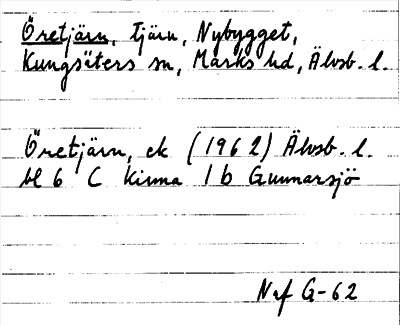 Öretjärn, tjärn, Nybygget,
Kungsäters sn, Marks hd, Älvsb. l.
Öretjärn, ek (1962) Älvsb. l.
bl 6 C Kinna 1 b Gunnarsjö
Naf G-62